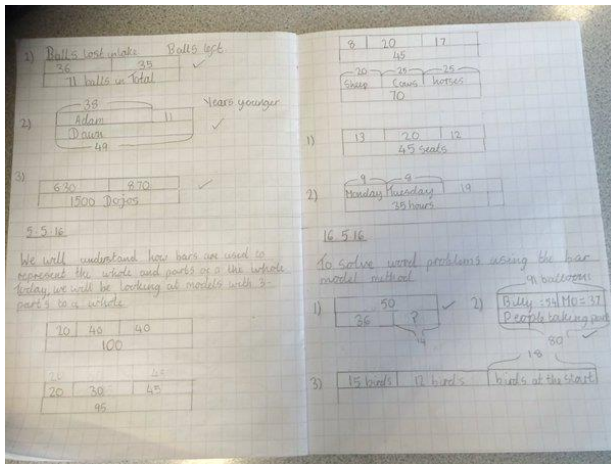 1) Balls lost in lake Balls left
36 35
71 balls in Total
38
Years younger
2) Adam 11
Dawn
49
3)
630 870
1500 Dojos
5.5.16
We will understand how bars are used to
represent the whole and parts of a the whole
today, we will be looking at models with 3
parts to a whole
20 40 40
100
20 30 45
95
8 20 17
45
20 25 25
Sheep Cows horses
70
1) 13 20 12
45 seats
9 8
2) Monday Tuesday 19
35 hours
16.5.16
To solve word problems using the bar
model method
91 balloons
1) 50
36 ?
14
2) Billy = 54 Mo = 37
People taking part
80
18
3) 15 birds 12 birds birds at the start